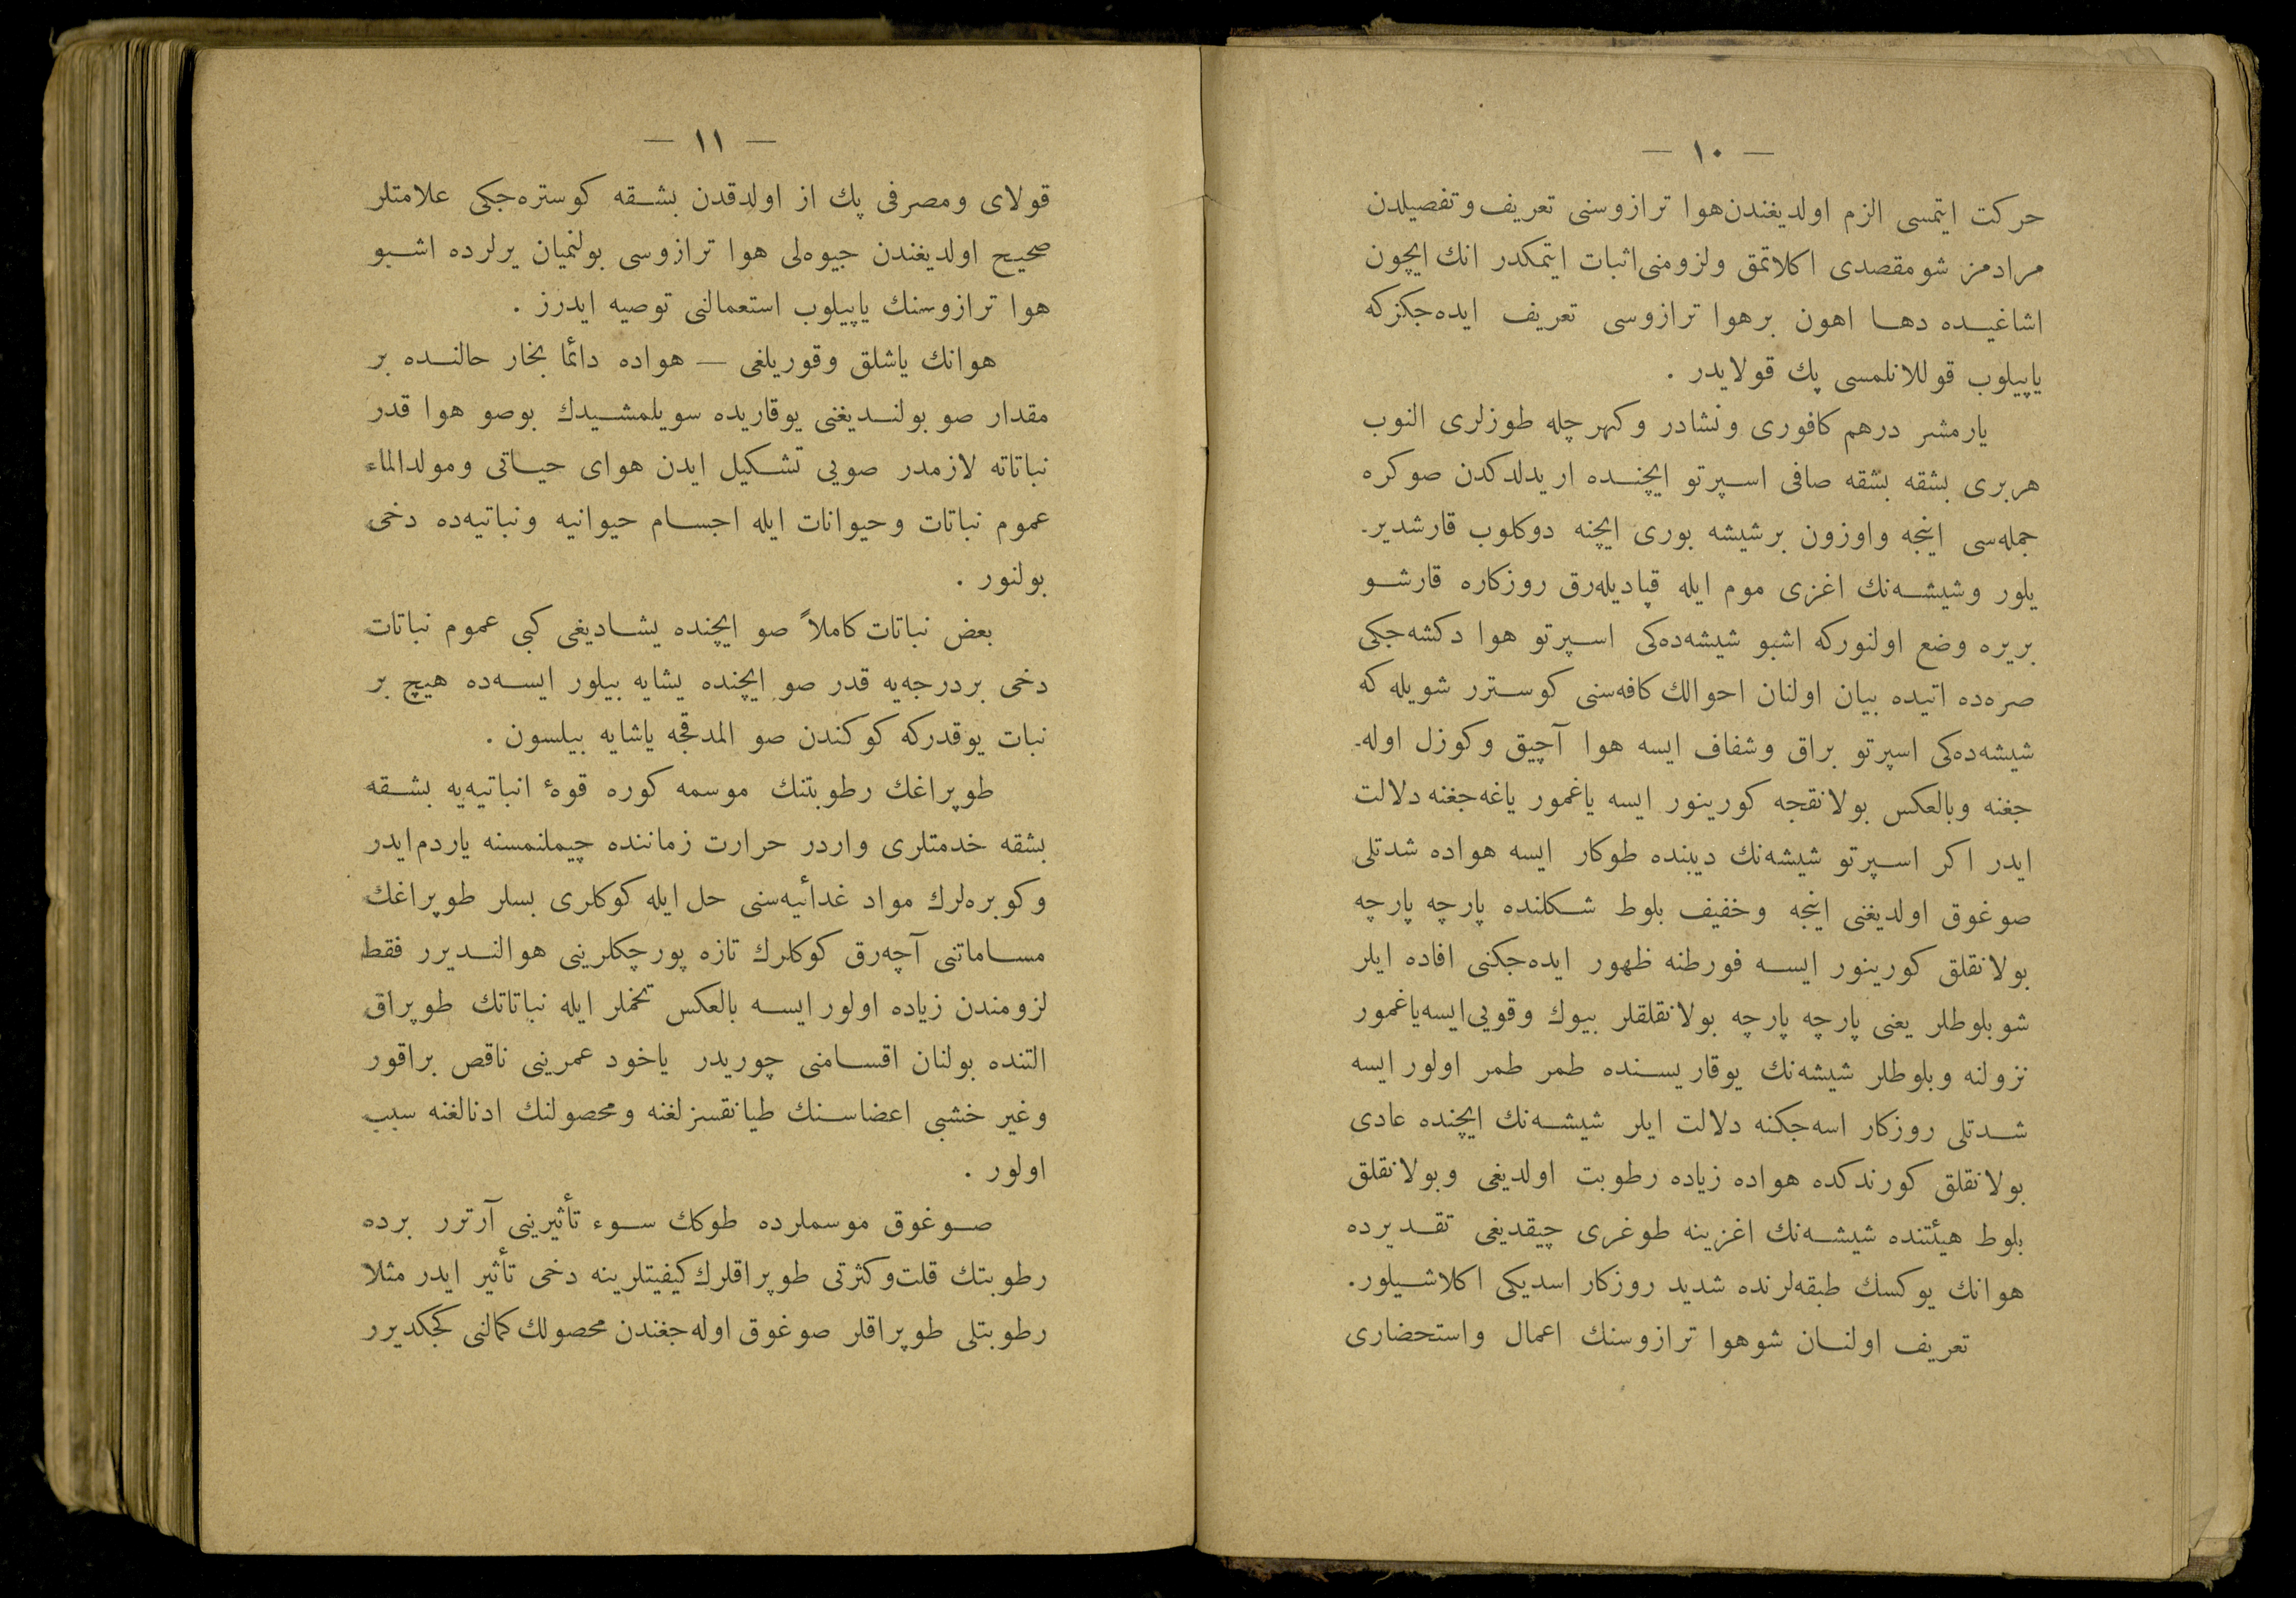 — ١٠ —
حركت ايتمسى الزم اولديغندن هوا ترازوسنى تعريف و تفصيلدن
مرادمز شو مقصدى اكلاتمق ولزومنى اثبات ايتمكدر انك ايچون
اشاغيده دها اهون برهوا ترازوسى تعريف ايده‌جكزكه
ياپيلوب قوللانلمسى پك قولايدر .
يارمشر درهم كافورى ونشادر وكهرچله طوزلرى النوب
هربرى بشقه بشقه صافى اسپرتو ايچنده اريدلدكدن صوكره
جمله‌سى اينجه واوزون برشيشه بورى ايچنه دوكلوب قارشدير-
يلور وشيشه‌نك اغزى موم ايله قپاديله‌رق روزكاره قارشو
بريره وضع اولنوركه اشبو شيشه‌ده‌كى اسپرتو هوا دكشه‌جكى
صره‌ده اتيده بيان اولنان احوالك كافه‌سنى كوسترر شويله كه
شيشه‌ده‌كى اسپرتو براق وشفاف ايسه هوا آچيق وكوزل اوله-
جغنه وبالعكس بولانقجه كورينور ايسه ياغمور ياغه‌جغنه دلالت
ايدر اكر اسپرتو شيشه‌نك ديبنده طوكار ايسه هواده شدتلى
صوغوق اولديغنى اينجه وخفيف بلوط شكلنده پارچه پارچه
بولانقلق كورينور ايسه فورطنه ظهور ايده‌جكنى افاده ايلر
شوبلوطلر يعنى پارچه پارچه بولانقلقلر بيوك وقويى ايسه ياغمور
نزولنه وبلوطلر شيشه‌نك يوقاريسنده طمر طمر اولور ايسه
شدتلى روزكار اسه‌جكنه دلالت ايلر شيشه‌نك ايچنده عادى
بولانقلق كورندكده هواده زياده رطوبت اولديغى وبولانقلق
بلوط هيئتنده شيشه‌نك اغزينه طوغرى چيقديغى تقديرده
هوانك يوكسك طبقه‌لرنده شديد روزكار اسديكى اكلاشيلور.
تعريف اولنان شوهوا ترازوسنك اعمال واستحضارى
— ١١ —
قولاى ومصرفى پك از اولدقدن بشقه كوستره‌جكى علامتلر
صحيح اولديغندن جيوه‌لى هوا ترازوسى بولنميان يرلرده اشبو
هوا ترازوسنك ياپيلوب استعمالنى توصيه ايدرز .
هوانك ياشلق وقوريلغى — هواده دائما بخار حالنده بر
مقدار صو بولنديغنى يوقاريده سويلمشيدك بوصو هوا قدر
نباتاته لازمدر صويى تشكيل ايدن هواى حياتى ومولدالماء
عموم نباتات وحيوانات ايله اجسام حيوانيه ونباتيه‌ده دخى
بولنور .
بعض نباتات كاملاً صو ايچنده يشاديغى كبى عموم نباتات
دخى بردرجه‌يه قدر صو ايچنده يشايه بيلور ايسه‌ده هيچ بر
نبات يوقدركه كوكندن صو المدقجه ياشايه بيلسون .
طوپراغك رطوبتنك موسمه كوره قوهٔ انباتيه‌يه بشقه
بشقه خدمتلرى واردر حرارت زماننده چيملنمسنه ياردم ايدر
وكوبره‌لرك مواد غدائيه‌سنى حل ايله كوكلرى بسلر طوپراغك
مساماتنى آچه‌رق كوكلرك تازه پورچكلرينى هوالنديرر فقط
لزومندن زياده اولور ايسه بالعكس تخملر ايله نباتاتك طوپراق
التنده بولنان اقسامنى چوريدر ياخود عمرينى ناقص براقور
وغير خشبى اعضاسنك طيانقسزلغنه ومحصولنك ادنالغنه سبب
اولور .
صوغوق موسملرده طوكك سوء تأثيرينى آرترر برده
رطوبتك قلت وكثرتى طوپراقلرك كيفيتلرينه دخى تأثير ايدر مثلا
رطوبتلى طوپراقلر صوغوق اوله‌جغندن محصولك كمالنى كجكديرر